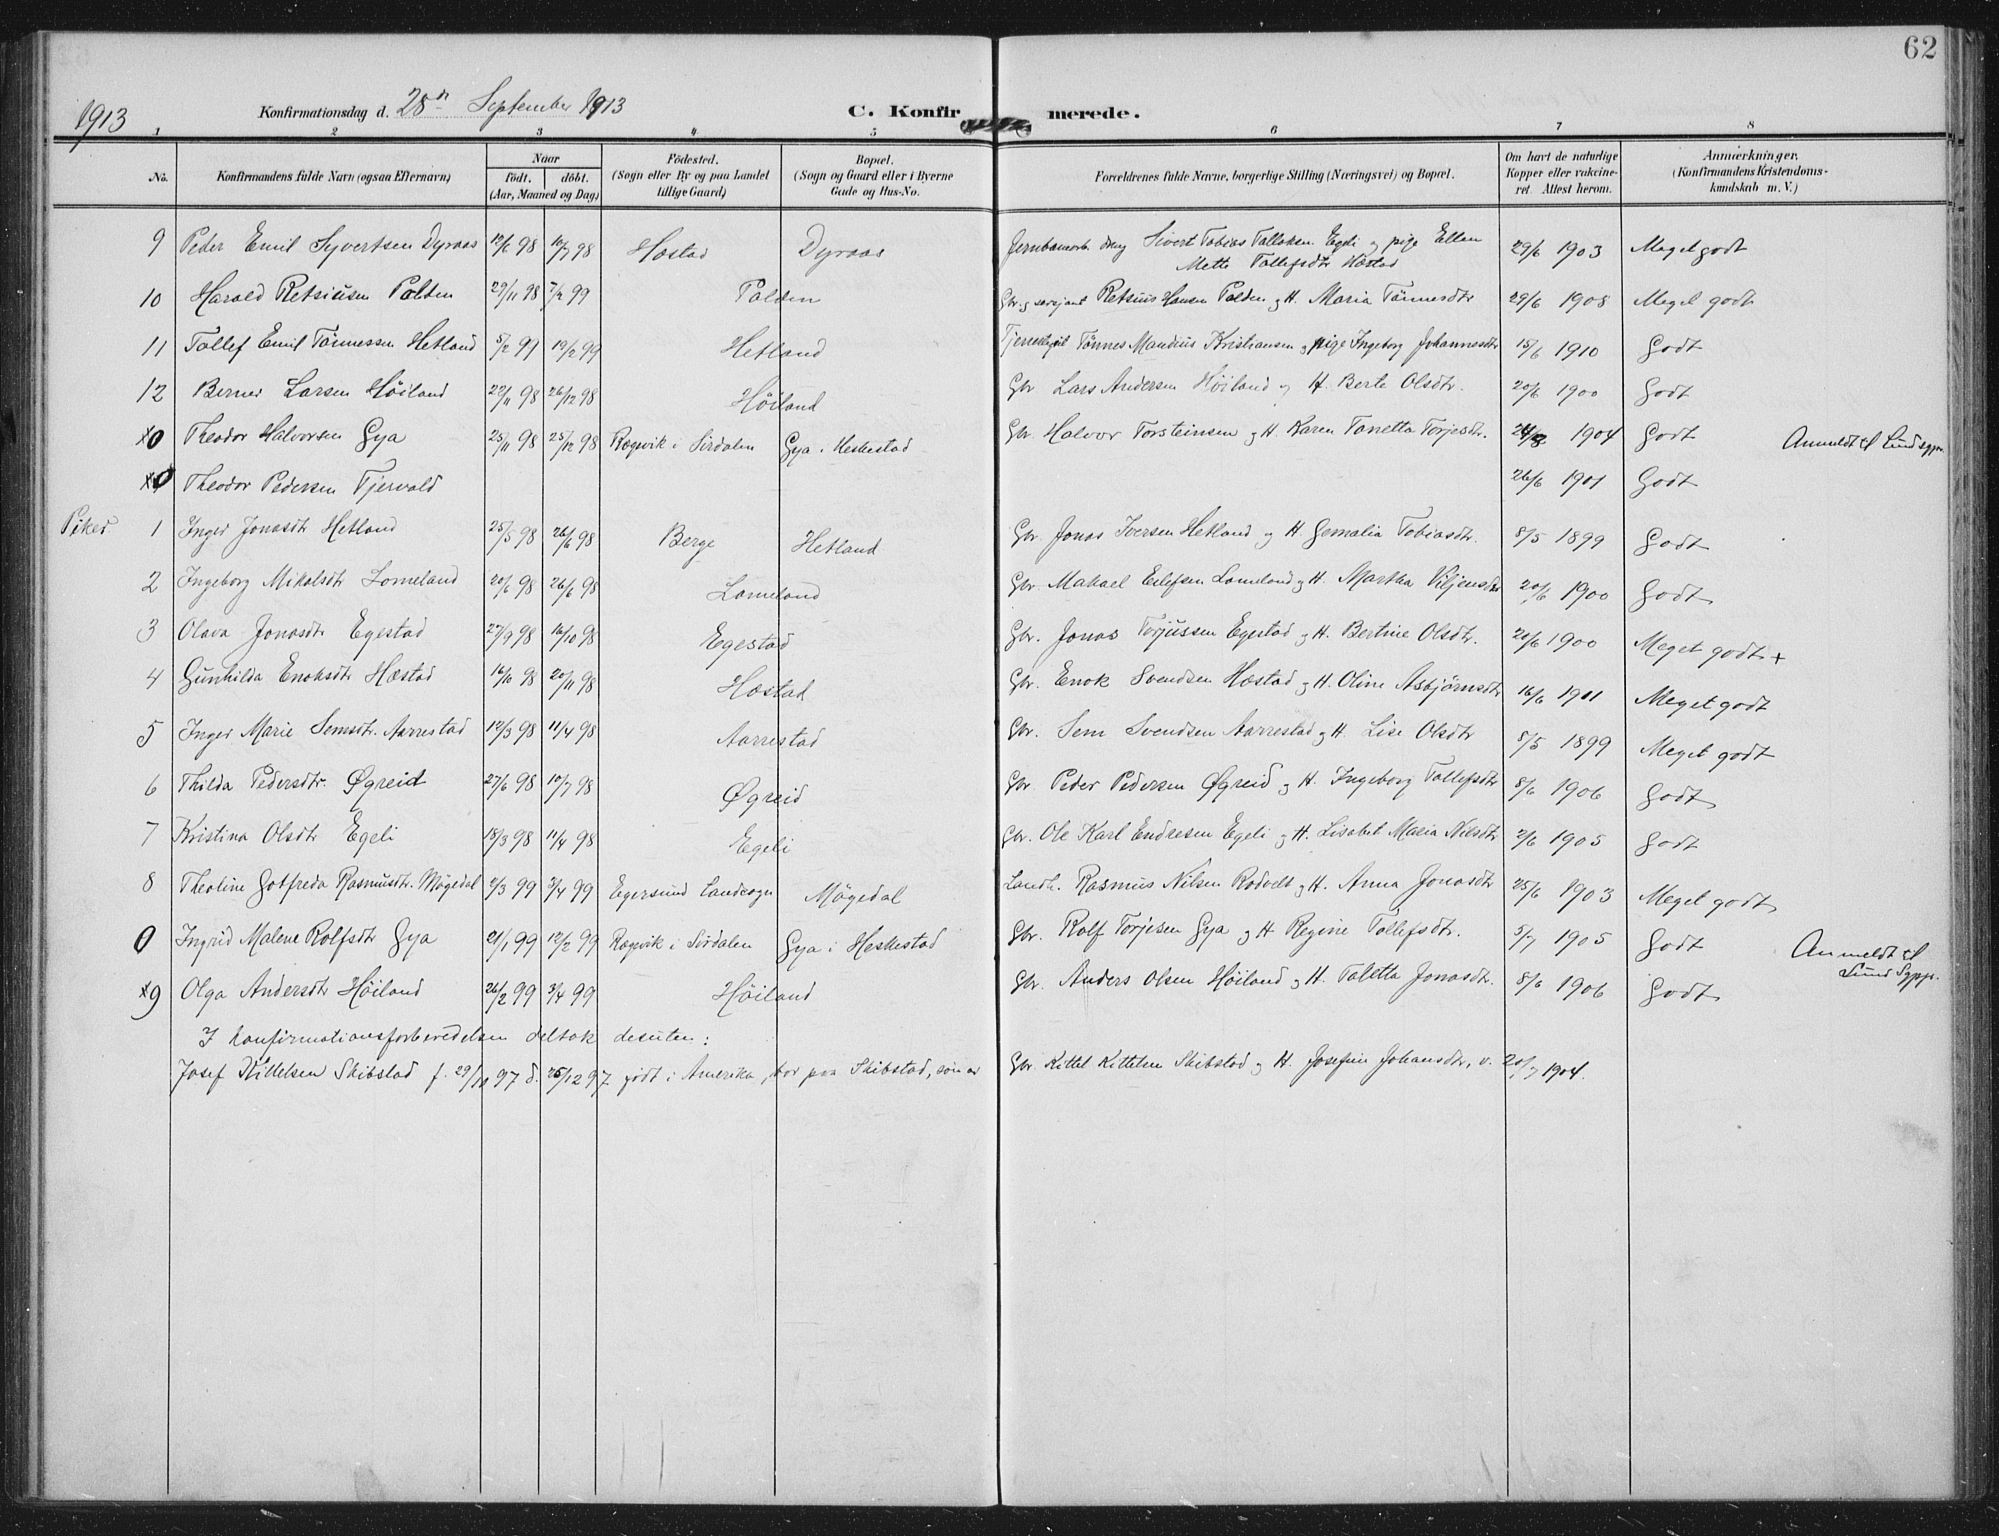 62
1913 Konfirmationsdag d. 28de September 1913 C. Konfirmerede.
1 2 3 4 5 6 7 8
No. Konfirmandens fulde Navn (ogsaa Efternavn) Naar født. døbt. (Aar, Maaned og Dag) Fødested. (Sogn eller By og paa Landet tillige Gaard) Bopæl. (Sogn og Gaard eller i Byerne Gade og Hus-No. Forældrenes fulde Navne, borgerlige Stilling (Næringsvei) og Bopæl. Om havt de naturlige Kopper eller vakcineret. Attest herom. Anmærkninger. (Konfirmandens Kristendomskundskab m. V.)
9 Peder Emil Syvertsen Dyraas 12/6 98 10/7 98 Hæstad Dyraas Jernbanearb. Sivert Tobias Tollaksen Egeli og pige Ellen 29/6 1903 Meget godt
Mette Tollefsdtr Hæstad
10 Harald Retsiusen Polden 29/11 98 7/2 99 Polden Gbr. og serjant Retsius Hansen Polden og H. Maria Tönnesdtr 29/6 1908 Meget godt
11 Tollef Emil Tönnessen Hetland 5/2 99 19/2 99 Hetland Tönnes Mandius Kristiansen og pige Ingeborg Johannesdtr 15/6 1910 Godt
12 Berner Larsen Höiland 22/11 98 26/12 98 Höiland Gbr Lars Andersen Höiland og H. Berte Olsdtr. 20/6 1900 Godt
0 Theodor Halvorsen Gya 25/11 98 25/12 98 Rægevik i Sirdalen Gya i Heskestad Gbr. Halvor Torsteinsen og H. Karen Tanetta Torjesdtr. 1904 Godt Anmeldt til Lund sgpr.
0 Theodor Pedersen Tjervold 26/6 1901 Godt
Piker 1 Inger Jonasdtr Hetland 25/5 98 26/6 98 Berge Hetland Gbr Jonas Iversen Hetland og H. Gemalia Tobiasdtr. 8/5 1899 Godt
2 Ingeborg Mikalsdtr Lomeland 20/6 98 26/6 98 Lomeland Gbr. Mikael Eilefsen Lomeland og H. Martha Viljensdtr 20/6 1900 Godt
3 Olava Jonasdtr Egestad 27/9 98 16/10 98 Egestad Gbr. Jonas Torjussen Egestad og H. Bertine Olsdtr. 20/6 1900 Meget godt +
4 Gunhilda Enoksdtr Hæstad 16/10 98 20/11 98 Hæstad Gbr. Enok Svendsen Hæstad og H. Oline Asbjörnsdtr 16/6 1901 Meget godt
5 Inger Marie Semsdtr. Aarrestad 12/3 98 11/4 98 Aarrestad Gbr. Sem Svendsen Aarrestad og H. Lise Olsdtr 8/5 1899 Meget godt
6 Thilda Pedersdtr. Øgreid 27/6 98 10/7 98 Øgreid Gbr Peder Pedersen Øgreid og H. Ingeborg Tollefsdtr 8/6 1906 Godt
7 Kristina Olsdtr Egeli 18/3 98 11/4 98 Egeli Gbr. Ole Karl Endresen Egeli og H. Lisabet Maria Nilsdtr 2/6 1905 Godt
8 Theoline Gotfreda Rasmusdtr. Mögedal 2/3 99 3/4 99 Egersund Landsogn Mögedal Landh. Rasmus Nilsen Rodvelt og H. Anna Jonasdtr 25/6 1903 Meget godt
0 Ingrid Malene Rolfsdtr Gya 21/1 99 12/2 99 Rægevik i Sirdalen Gya i Heskestad Gbr. Rolf Torjesen Gya og H Regine Tollefsdtr. 5/7 1905 Godt Anmeldt til Lund Sgpr.
9 Olga Andersdtr Höiland 26/2 99 3/4 99 Höiland Gbr. Anders Olsen Höiland og H. Taletta Jonasdtr. 8/6 1906 Godt
I konfirmationsforberedelsen deltok desuten:
Josef Kittelsen Skibstad f. 29/11 97 d. 25/12 97 födt i Amerika, bor paa Skibstad, sön av Gbr. Kittel Kittelsen Skibstad og H. Josefine Johansdtr, v. 20/7 1904.